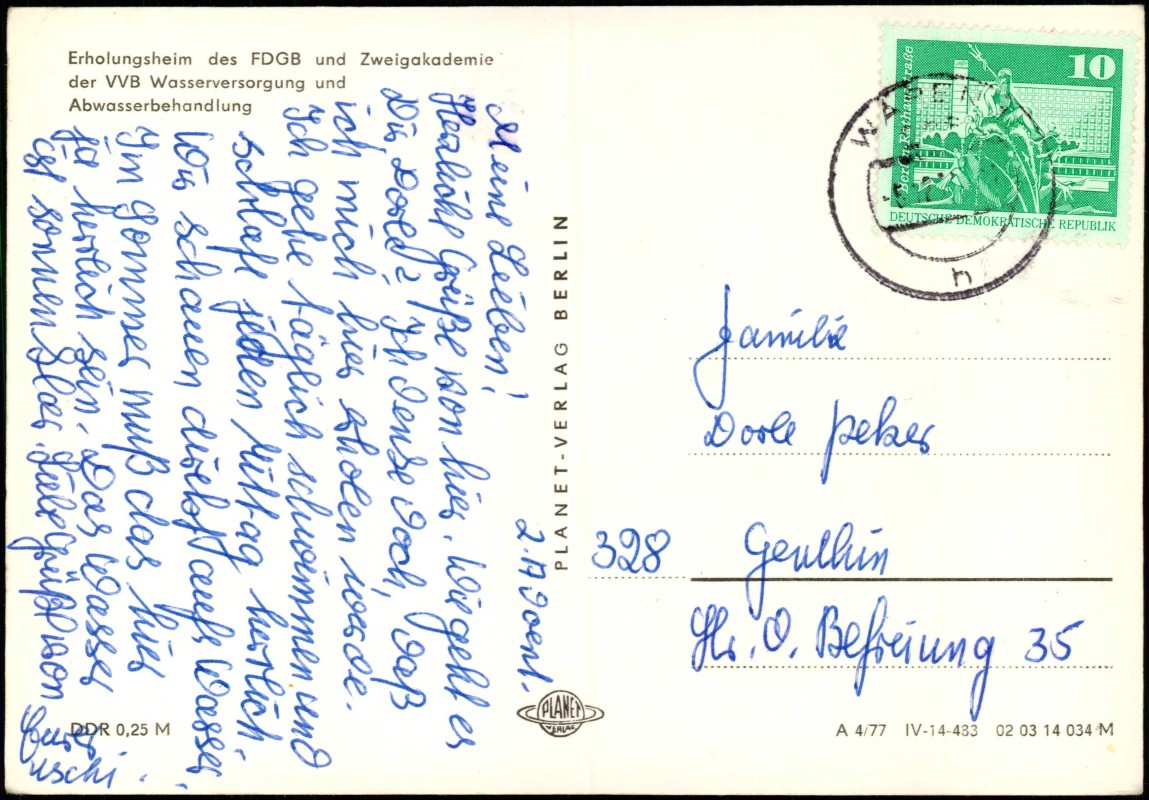 Erholungsheim des FDGB und Zweigakademie
der VVB Wasserversorgung und
Abwasserbehandlung
2. Advent.
Meine Lieben!
Herzliche Grüße von hier. Wie geht es
Dir, Dorle? Ich denke doch, daß
ich mich hier erholen werde.
Ich gehe täglich schwimmen und
schlafe jeden Mittag herrlich.
Wir schauen direkt aufs Wasser.
Im Sommer muß das hier
ja herrlich sein. Das Wasser
ist sonnenklar. Seid gegrüßt von
Eurer
Uschi.
DDR 0,25 M
PLANET-VERLAG BERLIN
PLANET
VERLAG
10
Berlin, Rathausstraße
DEUTSCHE DEMOKRATISCHE REPUBLIK
WAREN
h
Familie
Dorle Peker
328 Genthin
Str. d. Befreiung 35
A 4/77 IV-14-483 02 03 14 034 M